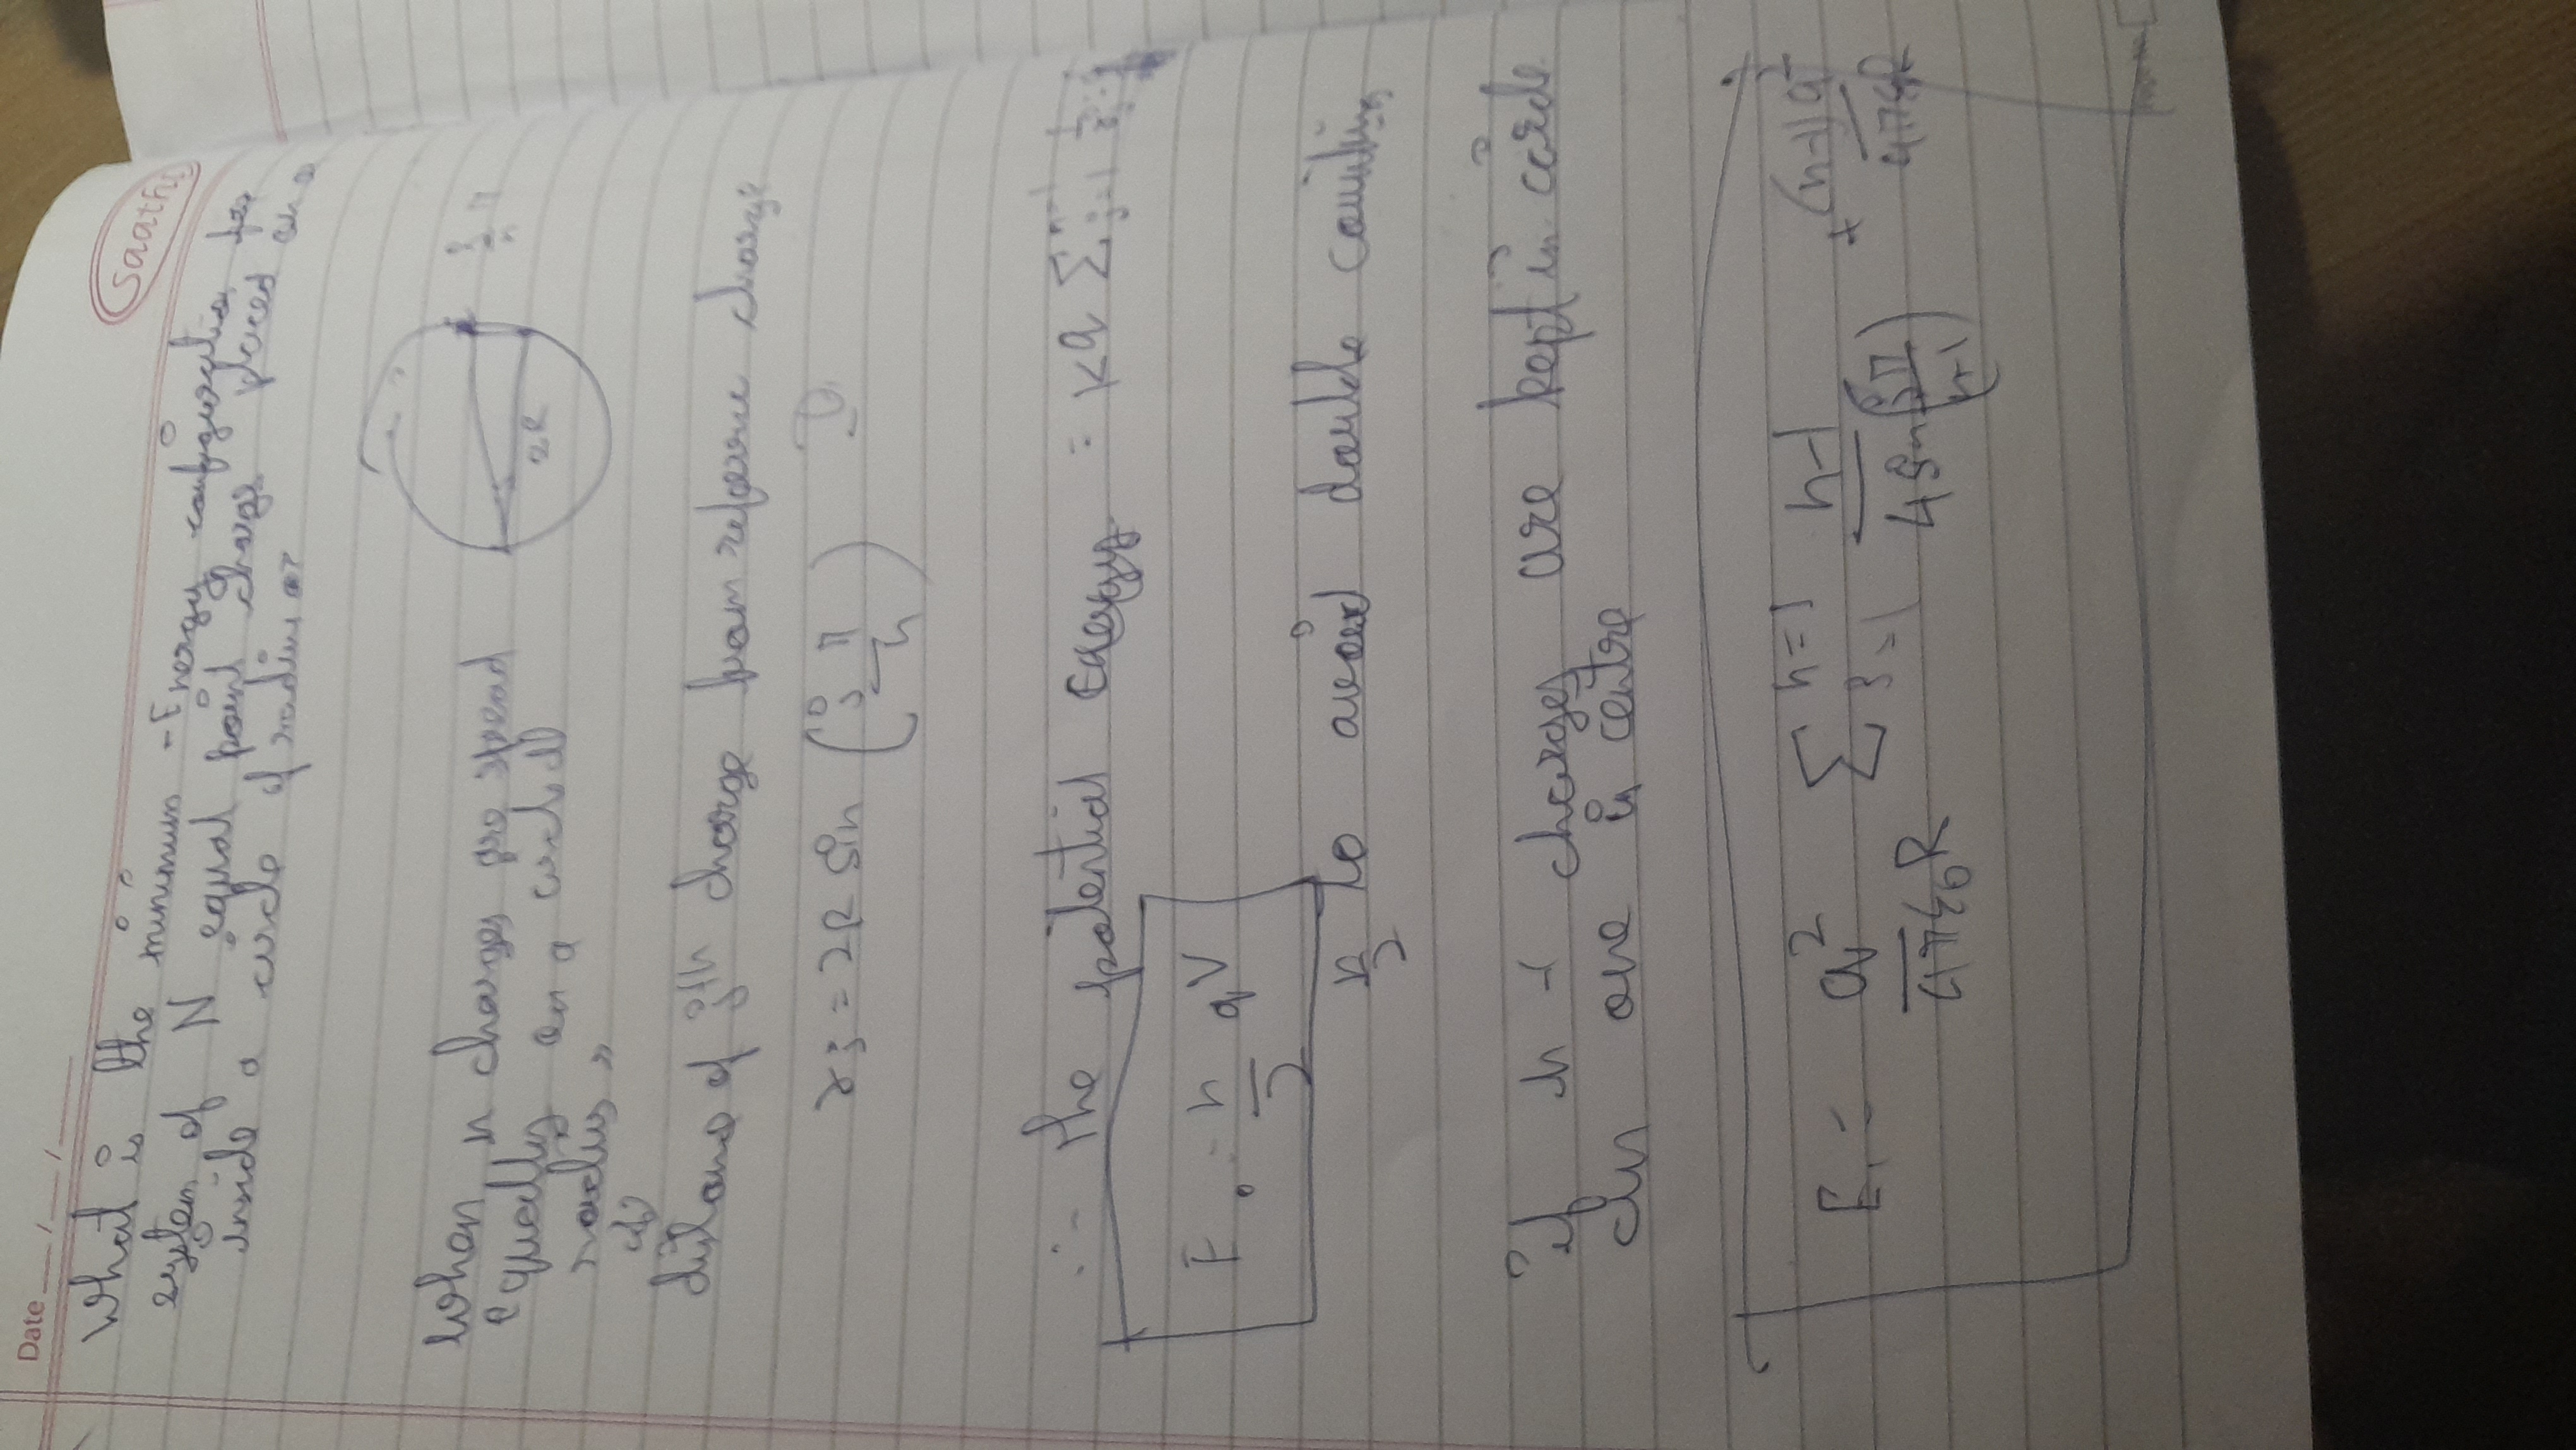 Date __/__/____
saathi
What is the minimum - Energy configuration for
system of N equal point charge placed on a
inside a circle of radius
When n charges are spread
equally on a circle of
radius
2R
j/n π
distance of jth charge from reference charge
rj = 2R sin (j π / n)
∴ the potential Energy = Kq Σ j=1 n-1 1/rj
E0 = n/2 qV
n/2 to avoid double counting
if n-1 charges are kept in circle
one in centre
E1 = q² / 4πε0R Σ n=1 j=1 n-1 / 4 sin (jπ / n-1) + (n-1)q² / 4πε0R